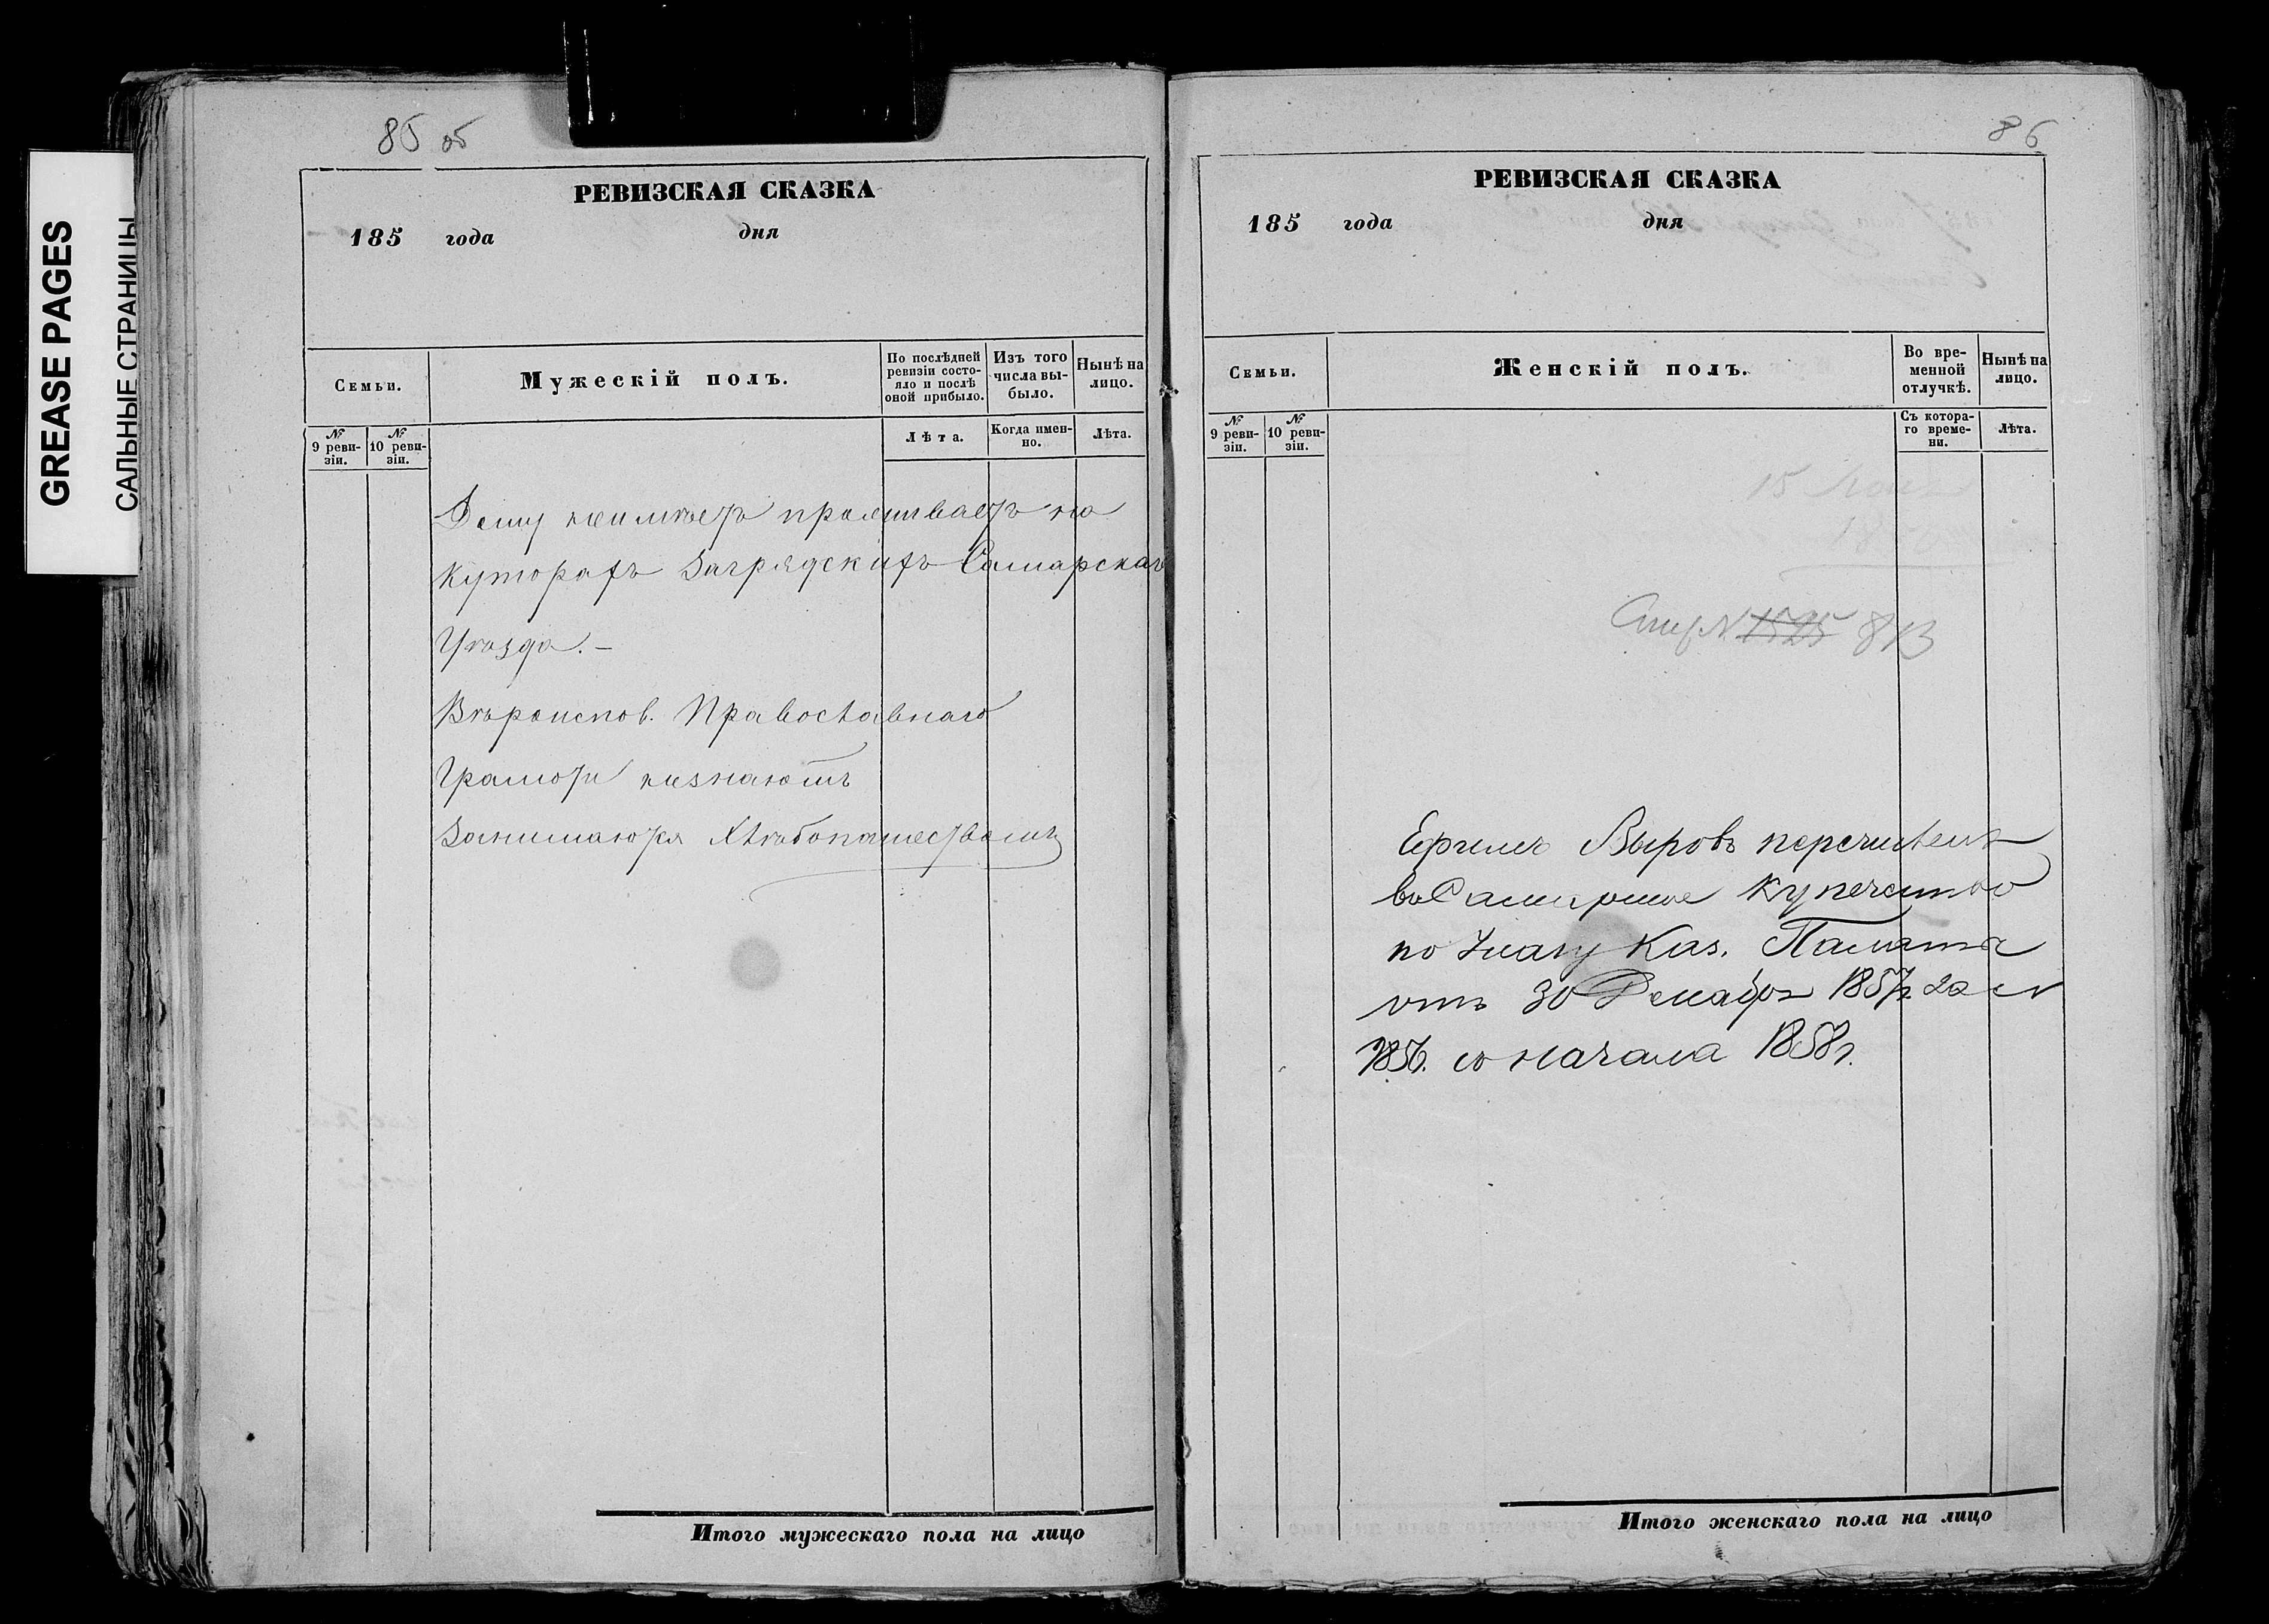 GREASE PAGES
САЛЬНЫЕ СТРАНИЦЫ
85 об
РЕВИЗСКАЯ СКАЗКА
185 года дня
Семьи.
Мужескій полъ.
По послѣдней ревизіи состо-
яло и послѣ
оной прибыло.
Изъ того
числа вы-
было.
Нынѣ на
лицо.
№
9 реви-
зіи.
№
10 реви-
зіи.
Лѣта.
Когда имен-
но.
Лѣта.
Дому неимѣетъ проживаетъ на
хуторахъ Загрядскихъ Самарскаго
Уѣзда. –
Вѣроиспов. Православнаго
Грамоти незнаютъ
Занимаются Хлѣбопашествомъ
Итого мужескаго пола на лицо
86
РЕВИЗСКАЯ СКАЗКА
185 года дня
Семьи.
Женскій полъ.
Во вре-
менной
отлучкѣ.
Нынѣ на
лицо.
№
9 реви-
зіи.
№
10 реви-
зіи.
Съ котора-
го време-
ни.
Лѣта.
N 1525 813
Ефимъ Выровъ перечисленъ
въ Самарское купечество
по Указу Каз. Палаты
отъ 30 Декабря 1857 г. за N
со начала 1858 г.
Итого женскаго пола на лицо